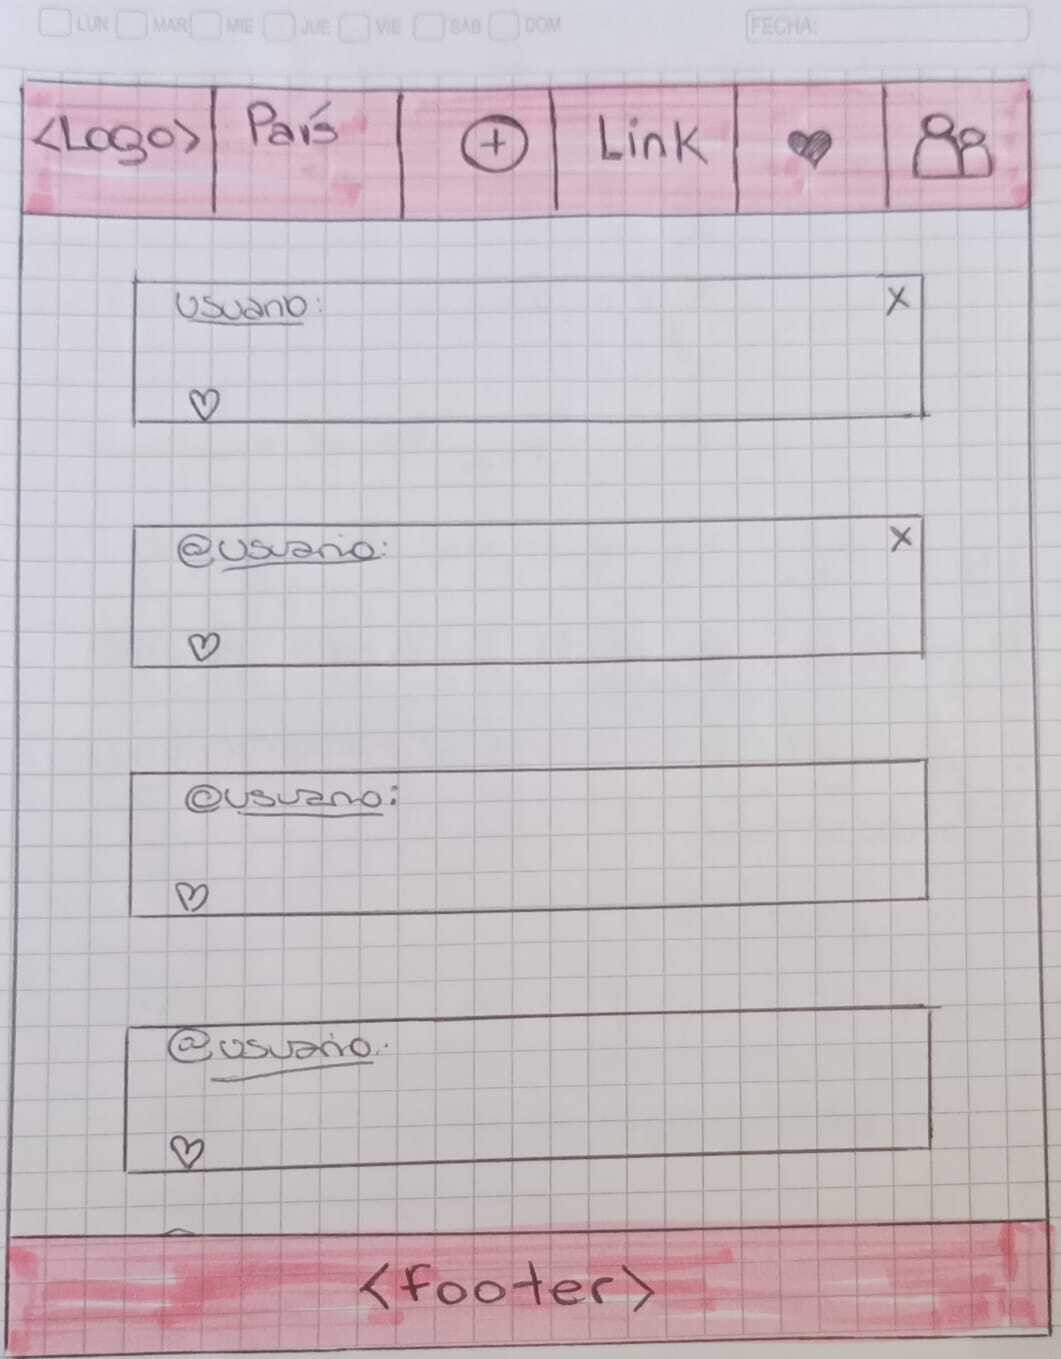 LUN MAR MIE JUE VIE SAB DOM FECHA:
<Logo> País + Link
Usuario: X
@usuario: X
@usuario:
@usuario:
<footer>